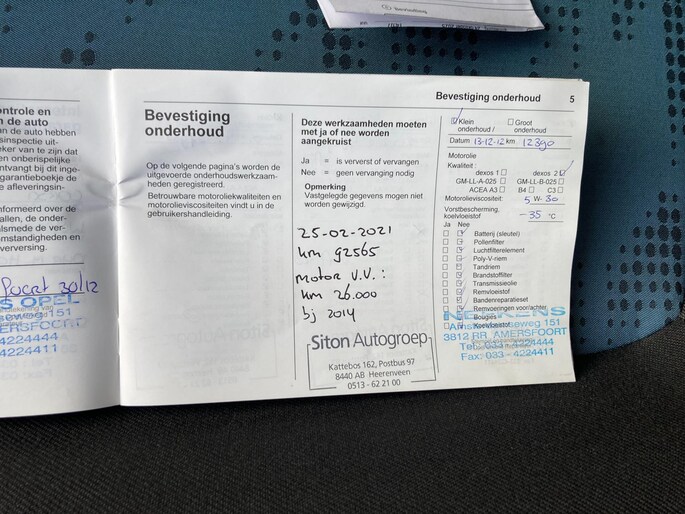 ontrole en
n de auto
an de auto hebben
sinspectie uit-
eker van te zijn dat
en onberispelijke
ntvangt bij dit inge-
garantieboekje de
e afleverings-
nformeerd over de
allen, de onder-
alsmede de ver-
mstandigheden en
verversing.
30/12
S OPEL
eweg 151
ERSFOORT
4224444
4224411
Bevestiging
onderhoud
Op de volgende pagina's worden de
uitgevoerde onderhoudswerkzaam-
heden geregistreerd.
Betrouwbare motoroliekwaliteiten en
motorolieviscositeiten vindt u in de
gebruikershandleiding.
Deze werkzaamheden moeten
met ja of nee worden
aangekruist
Ja = is ververst of vervangen
Nee = geen vervanging nodig
Opmerking
Vastgelegde gegevens mogen niet
worden gewijzigd.
25-02-2021
km 92565
motor v.v.:
km 26.000
bj 2014
Siton Autogroep
Kattebos 162, Postbus 97
8440 AB Heerenveen
0513 - 62 21 00
Bevestiging onderhoud 5
Klein onderhoud / Groot onderhoud
Datum 13-12-12 km 12390
Motorolie
Kwaliteit: dexos 2
GM-LL-A-025 GM-LL-B-025
ACEA A3 B4 C3
Motorolieviscositeit: 5 W- 30
Vorstbescherming,
koelvloeistof -35 °C
Ja Nee
Batterij (sleutel)
Pollenfilter
Luchtfilterelement
Poly-V-riem
Tandriem
Brandstoffilter
Transmissieolie
Remvloeistof
Bandenreparatieset
Remvoeringen voor/achter
Bougies
Koelvloeistof
weg 151
3812 RR AMERSFOORT
Tel: 033 - 4224444
Fax: 033 - 4224411